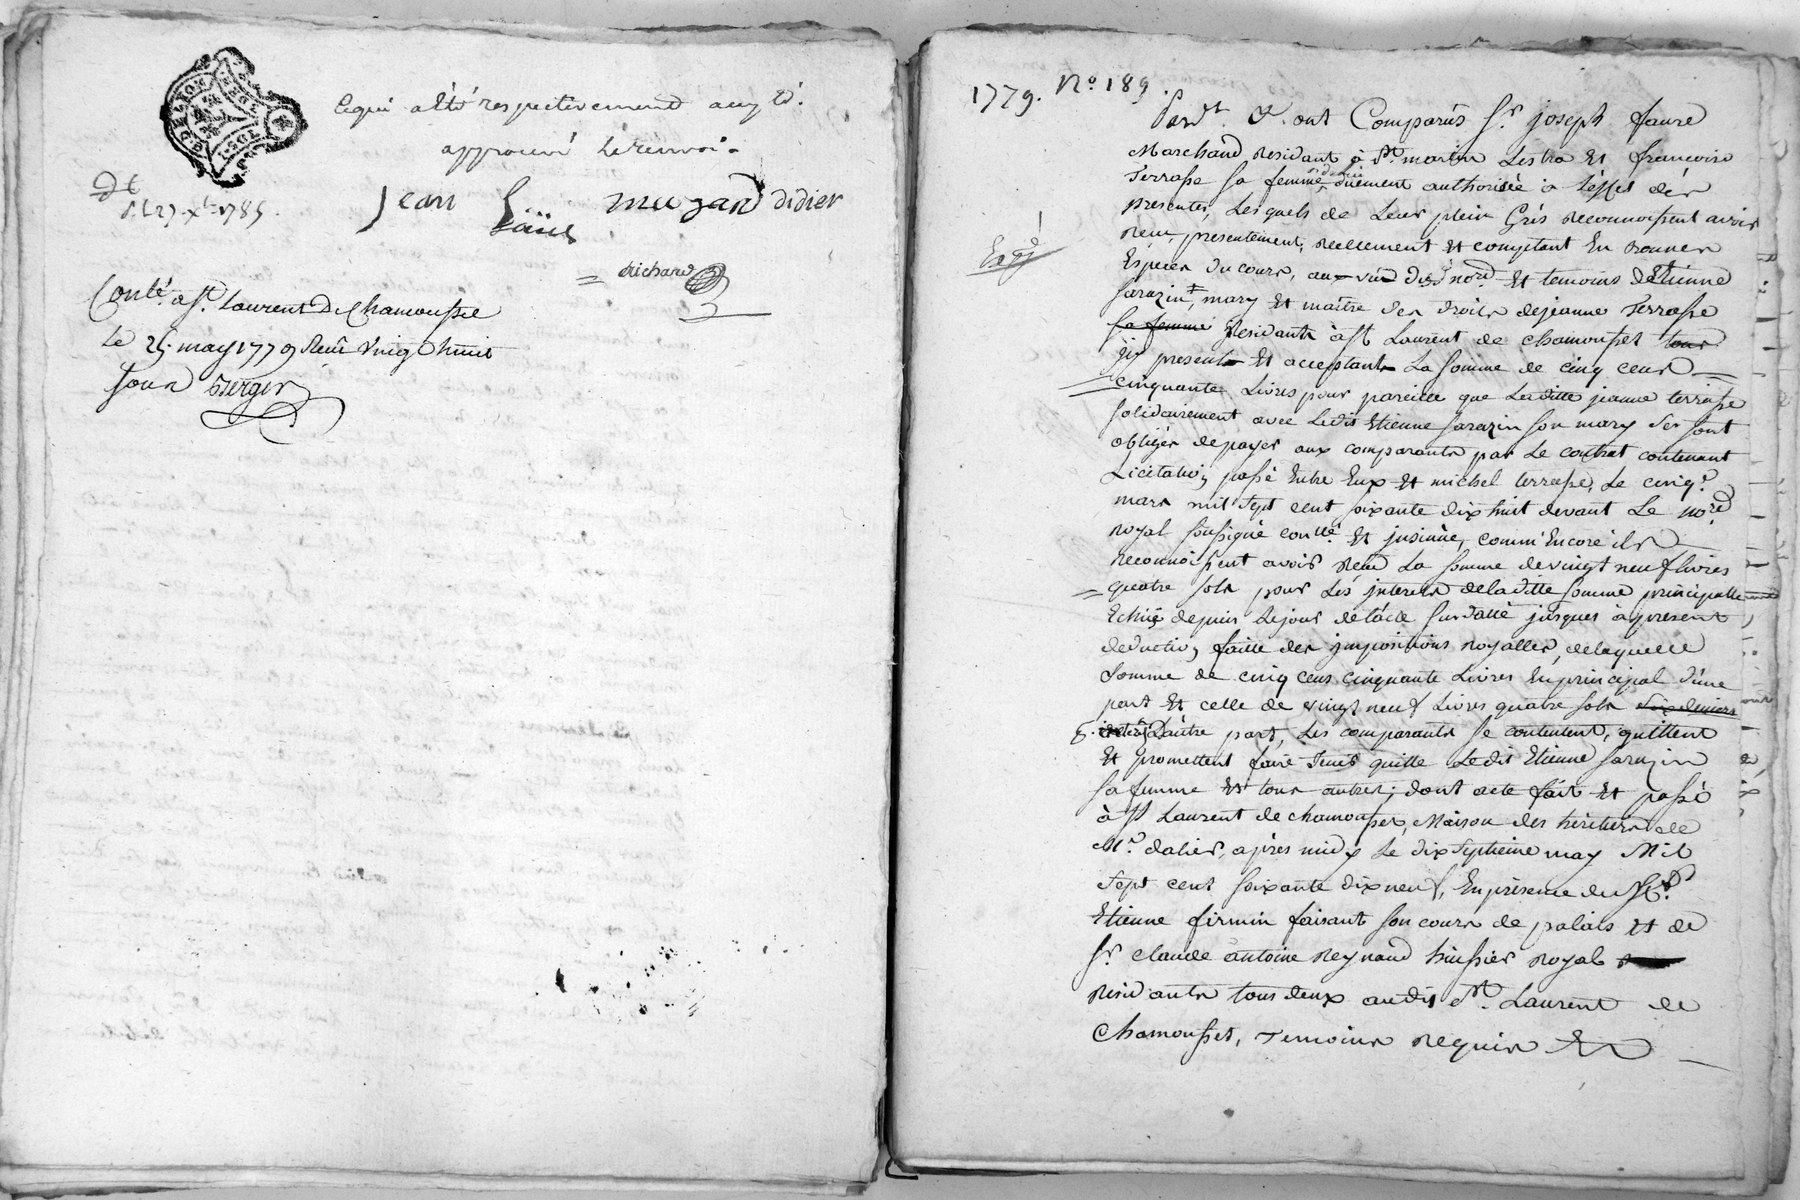 Ce qui a été respectivement accepté.
approuvé le renvoi.
Jean mazard didier
richard
Conté. a St. laurent De Chamousset
le 25 may 1779 Receu vingt huit
sous Berger
1779. No. 189.
Pardt. &. ont Comparus Sr. joseph faure
Marchand Residant à St. martin Lestra Et francoise
Terrasse sa femme, duement authorisée à l'effet des
presentes, Lesquels de Leur plein Grés Reconnoissent avoir
Receu, presentement, Reellement Et comptant En Bonnes
Espèces du cours, aux vüe dud. nore. Et temoins d'Etienne
Sarazin, mary Et maître des droits de jeanne Terrasse
sa femme Residants à St Laurent de chamousset tous
icy presents Et acceptants La somme de cinq cens
cinquante Livres pour pareille que Laditte jeanne terrasse
solidairement avec Ledit Etienne Sarazin son mary se sont
obligés de payer aux comparants par Le contrat contenant
Licitation passé Entre Eux Et michel terrasse, Le cinqe.
mars mil sept cent soixante dix huit devant Le nore.
royal soussigné contlé. Et insinué, comm'Encore ils
Reconnoissent avoir Receu La somme de vingt neuf livres
quatre sols pour Les interets de laditte somme principalle
Echus depuis Lejour de l'acte susdatté jusques à present
deduction faitte des impositions royalles, de laquelle
somme de cinq cens cinquante Livres En principal d'une
part Et celle de vingt neuf Livres quatre sols six deniers
d'autre part, Les comparants se contentent, quittent
Et promettent faire Tenir quitte Ledit Etienne Sarazin
sa femme Et tous autres; dont acte fait Et passé
à St Laurent de chamousset, Maison des heritiers de
Me. dalier, après midy Le dix septieme may Mil
Sept cent soixante dix neuf, En présence de Sr.
Etienne firmin faisant son cours de palais Et de
Sr. claude antoine Reynaud huissier royal
Residants tous deux audit St. Laurent de
Chamousset, Temoins Requis